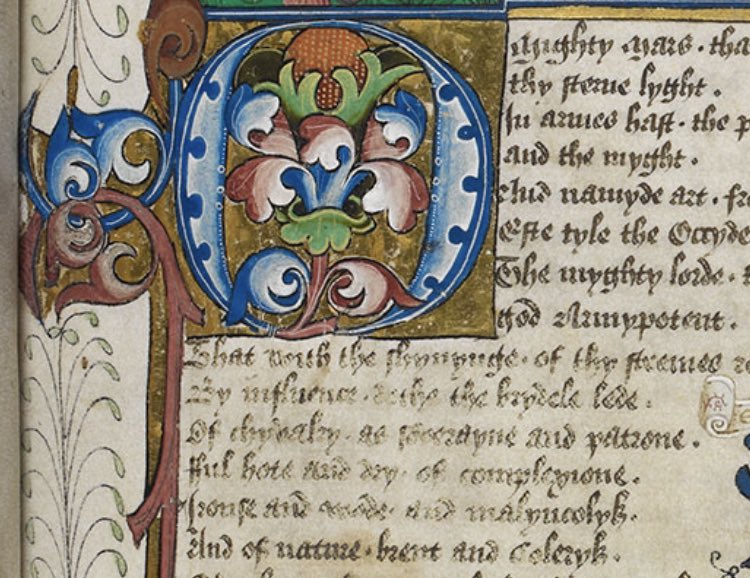 O Myghty Mars · tha
thy sterne lyght .
In armes hast · the p
and the myght .
And namyde art · fr
Este tyle the Occyde
The myghty lorde ·
god Armypotent .
That with the shynynge · of thy stremes
By influence · dothe the brydele lede .
Of chyvalry · as soverayne and patrone .
fful hote and dry · of complexione .
Irouse and wode · and malyncolyk .
And of nature · brent and Coleryk .